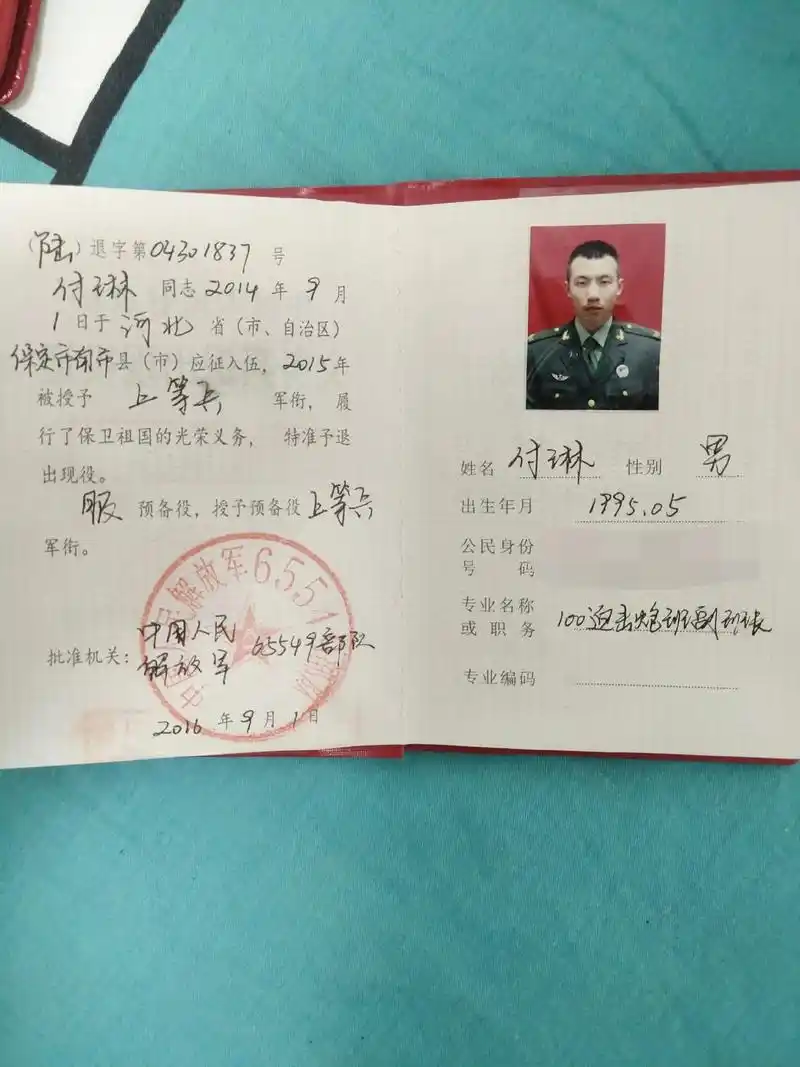 (陆)退字第04301837号
付琳 同志2014年9月
1日于河北省(市、自治区)
保定市南市县(市)应征入伍，2015年
被授予 上等兵 军衔，履
行了保卫祖国的光荣义务，特准予退
出现役。
服 预备役，授予预备役上等兵
军衔。
批准机关：中国人民
解放军 65549部队
2016年9月1日
姓名 付琳 性别 男
出生年月 1995.05
公民身份
号码
专业名称
或职务 100迫击炮班副班长
专业编码